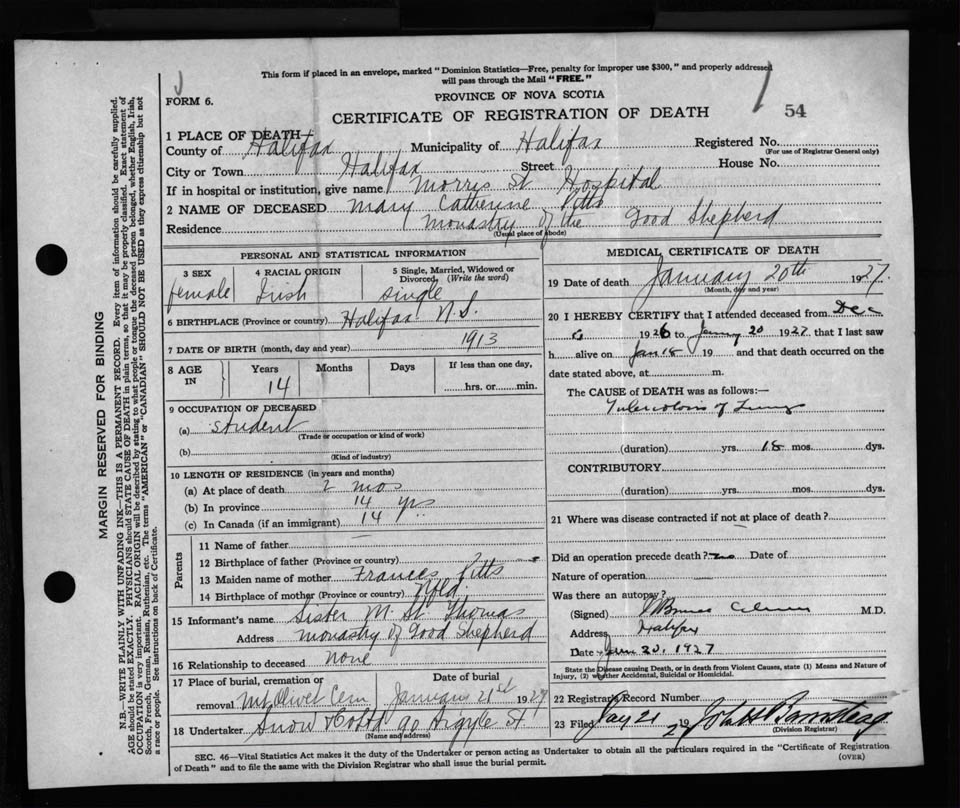 This form if placed in an envelope, marked "Dominion Statistics—Free, penalty for improper use $300," and properly addressed
will pass through the Mail "FREE."
FORM 6.
PROVINCE OF NOVA SCOTIA
CERTIFICATE OF REGISTRATION OF DEATH
54
1 PLACE OF DEATH—
County of Halifax Municipality of Halifax Registered No.
(For use of Registrar General only)
City or Town Halifax Street House No.
If in hospital or institution, give name Morris St Hospital
2 NAME OF DECEASED Mary Catherine Pitts
Residence Monastry of the Good Shepherd
(Usual place of abode)
PERSONAL AND STATISTICAL INFORMATION
3 SEX 4 RACIAL ORIGIN 5 Single, Married, Widowed or
Divorced, (Write the word)
female Irish single
6 BIRTHPLACE (Province or country) Halifax N.S.
7 DATE OF BIRTH (month, day and year) 1913
8 AGE IN Years Months Days If less than one day,
14 hrs. or min.
9 OCCUPATION OF DECEASED
(a) student
(Trade or occupation or kind of work)
(b)
(Kind of industry)
10 LENGTH OF RESIDENCE (in years and months)
(a) At place of death 2 mos
(b) In province 14 yrs
(c) In Canada (if an immigrant) 14 "
Parents
11 Name of father —
12 Birthplace of father (Province or country)
13 Maiden name of mother Frances Pitts
14 Birthplace of mother (Province or country) Nfld.
15 Informant's name Sister M. St. Thomas
Address Monastry of Good Shepherd
16 Relationship to deceased none
17 Place of burial, cremation or Date of burial
removal Mt. Olivet Cem January 21st 1927
18 Undertaker Snow & Co Ltd 90 Argyle St
(Name and address)
MEDICAL CERTIFICATE OF DEATH
19 Date of death January 20th 1927.
(Month, day and year)
20 I HEREBY CERTIFY that I attended deceased from Dec
6 1926 to 20 1927 that I last saw
h alive on Jan 18 19 and that death occurred on the
date stated above, at m.
The CAUSE of DEATH was as follows:—
Tuberculosis of Lungs
(duration) yrs. 18 mos. dys.
CONTRIBUTORY
(duration) yrs. mos. dys.
21 Where was disease contracted if not at place of death?
Did an operation precede death? no Date of
Nature of operation
Was there an autopsy?
(Signed) M.D.
Address Halifax
Date Jan 20, 1927
State the Disease causing Death, or in death from Violent Causes, state (1) Means and Nature of
Injury, (2) whether Accidental, Suicidal or Homicidal.
22 Registrar's Record Number
23 Filed 21 1927
(Division Registrar)
SEC. 46—Vital Statistics Act makes it the duty of the Undertaker or person acting as Undertaker to obtain all the particulars required in the "Certificate of Registration
of Death" and to file the same with the Division Registrar who shall issue the burial permit.
(OVER)
MARGIN RESERVED FOR BINDING
N.B.—WRITE PLAINLY WITH UNFADING INK—THIS IS A PERMANENT RECORD. Every item of information should be carefully supplied.
AGE should be stated EXACTLY. PHYSICIANS should STATE CAUSE OF DEATH in plain terms, so that it may be properly classified. Exact statement of
OCCUPATION is very important. RACIAL ORIGIN will be described by stating to what people or tongue the deceased person belonged, whether English, Irish,
Scotch, French, German, Russian, Ruthenian, etc. The terms "AMERICAN" or "CANADIAN" SHOULD NOT BE USED as they express citizenship but not
a race or people. See instructions on back of Certificate.